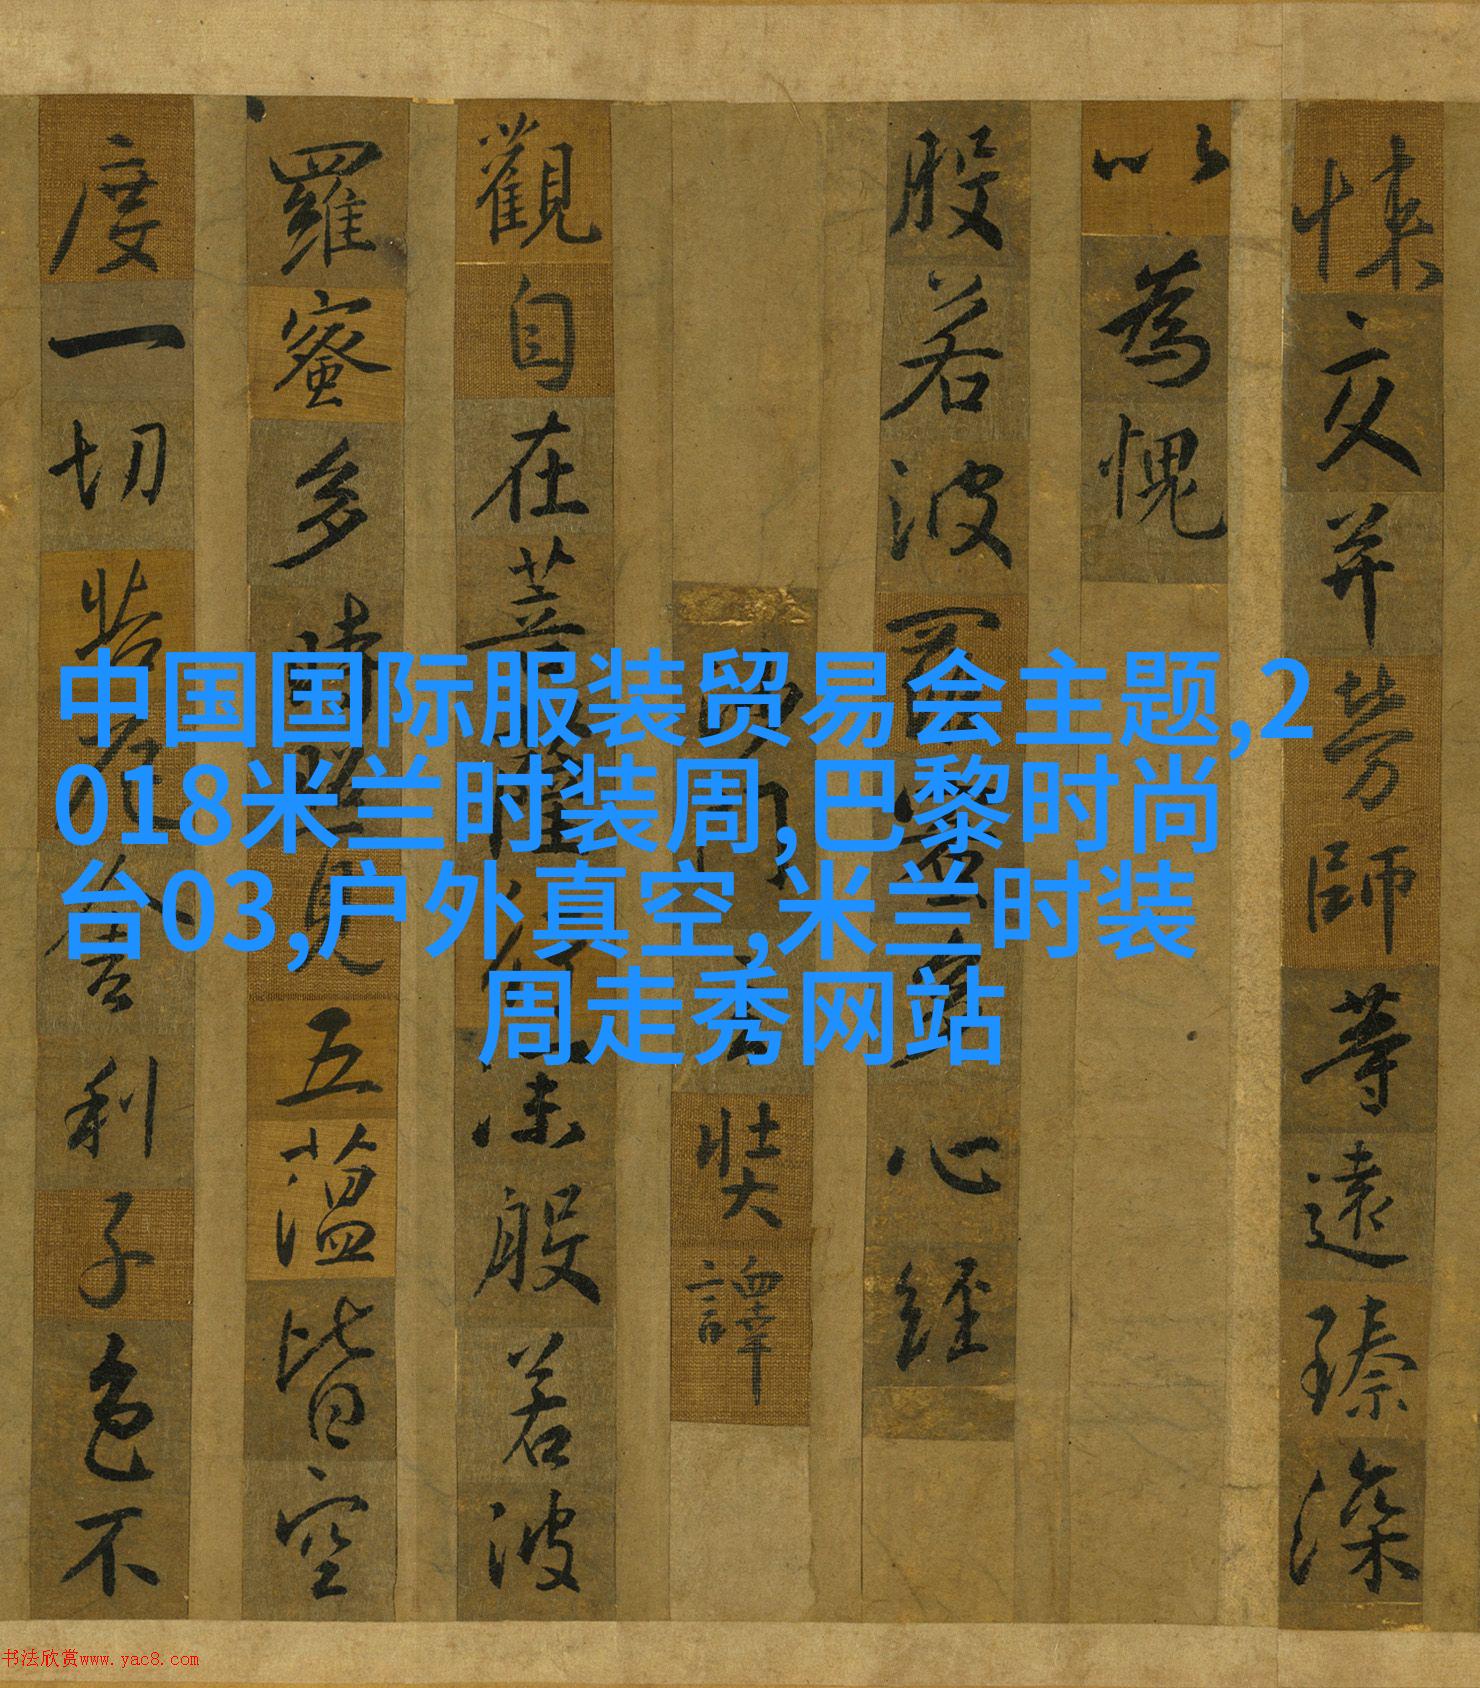 悚交并勞師等遠臻深
以為愧
般若波羅蜜多心經
沙門玄奘譯
觀自在菩薩行深般若波
羅蜜多時照見五蘊皆空
度一切苦厄舍利子色不
中国国际服装贸易会主题,2
018米兰时装周,巴黎时尚
台03,户外真空,米兰时装
周走秀网站
书法欣赏www.yac8.com